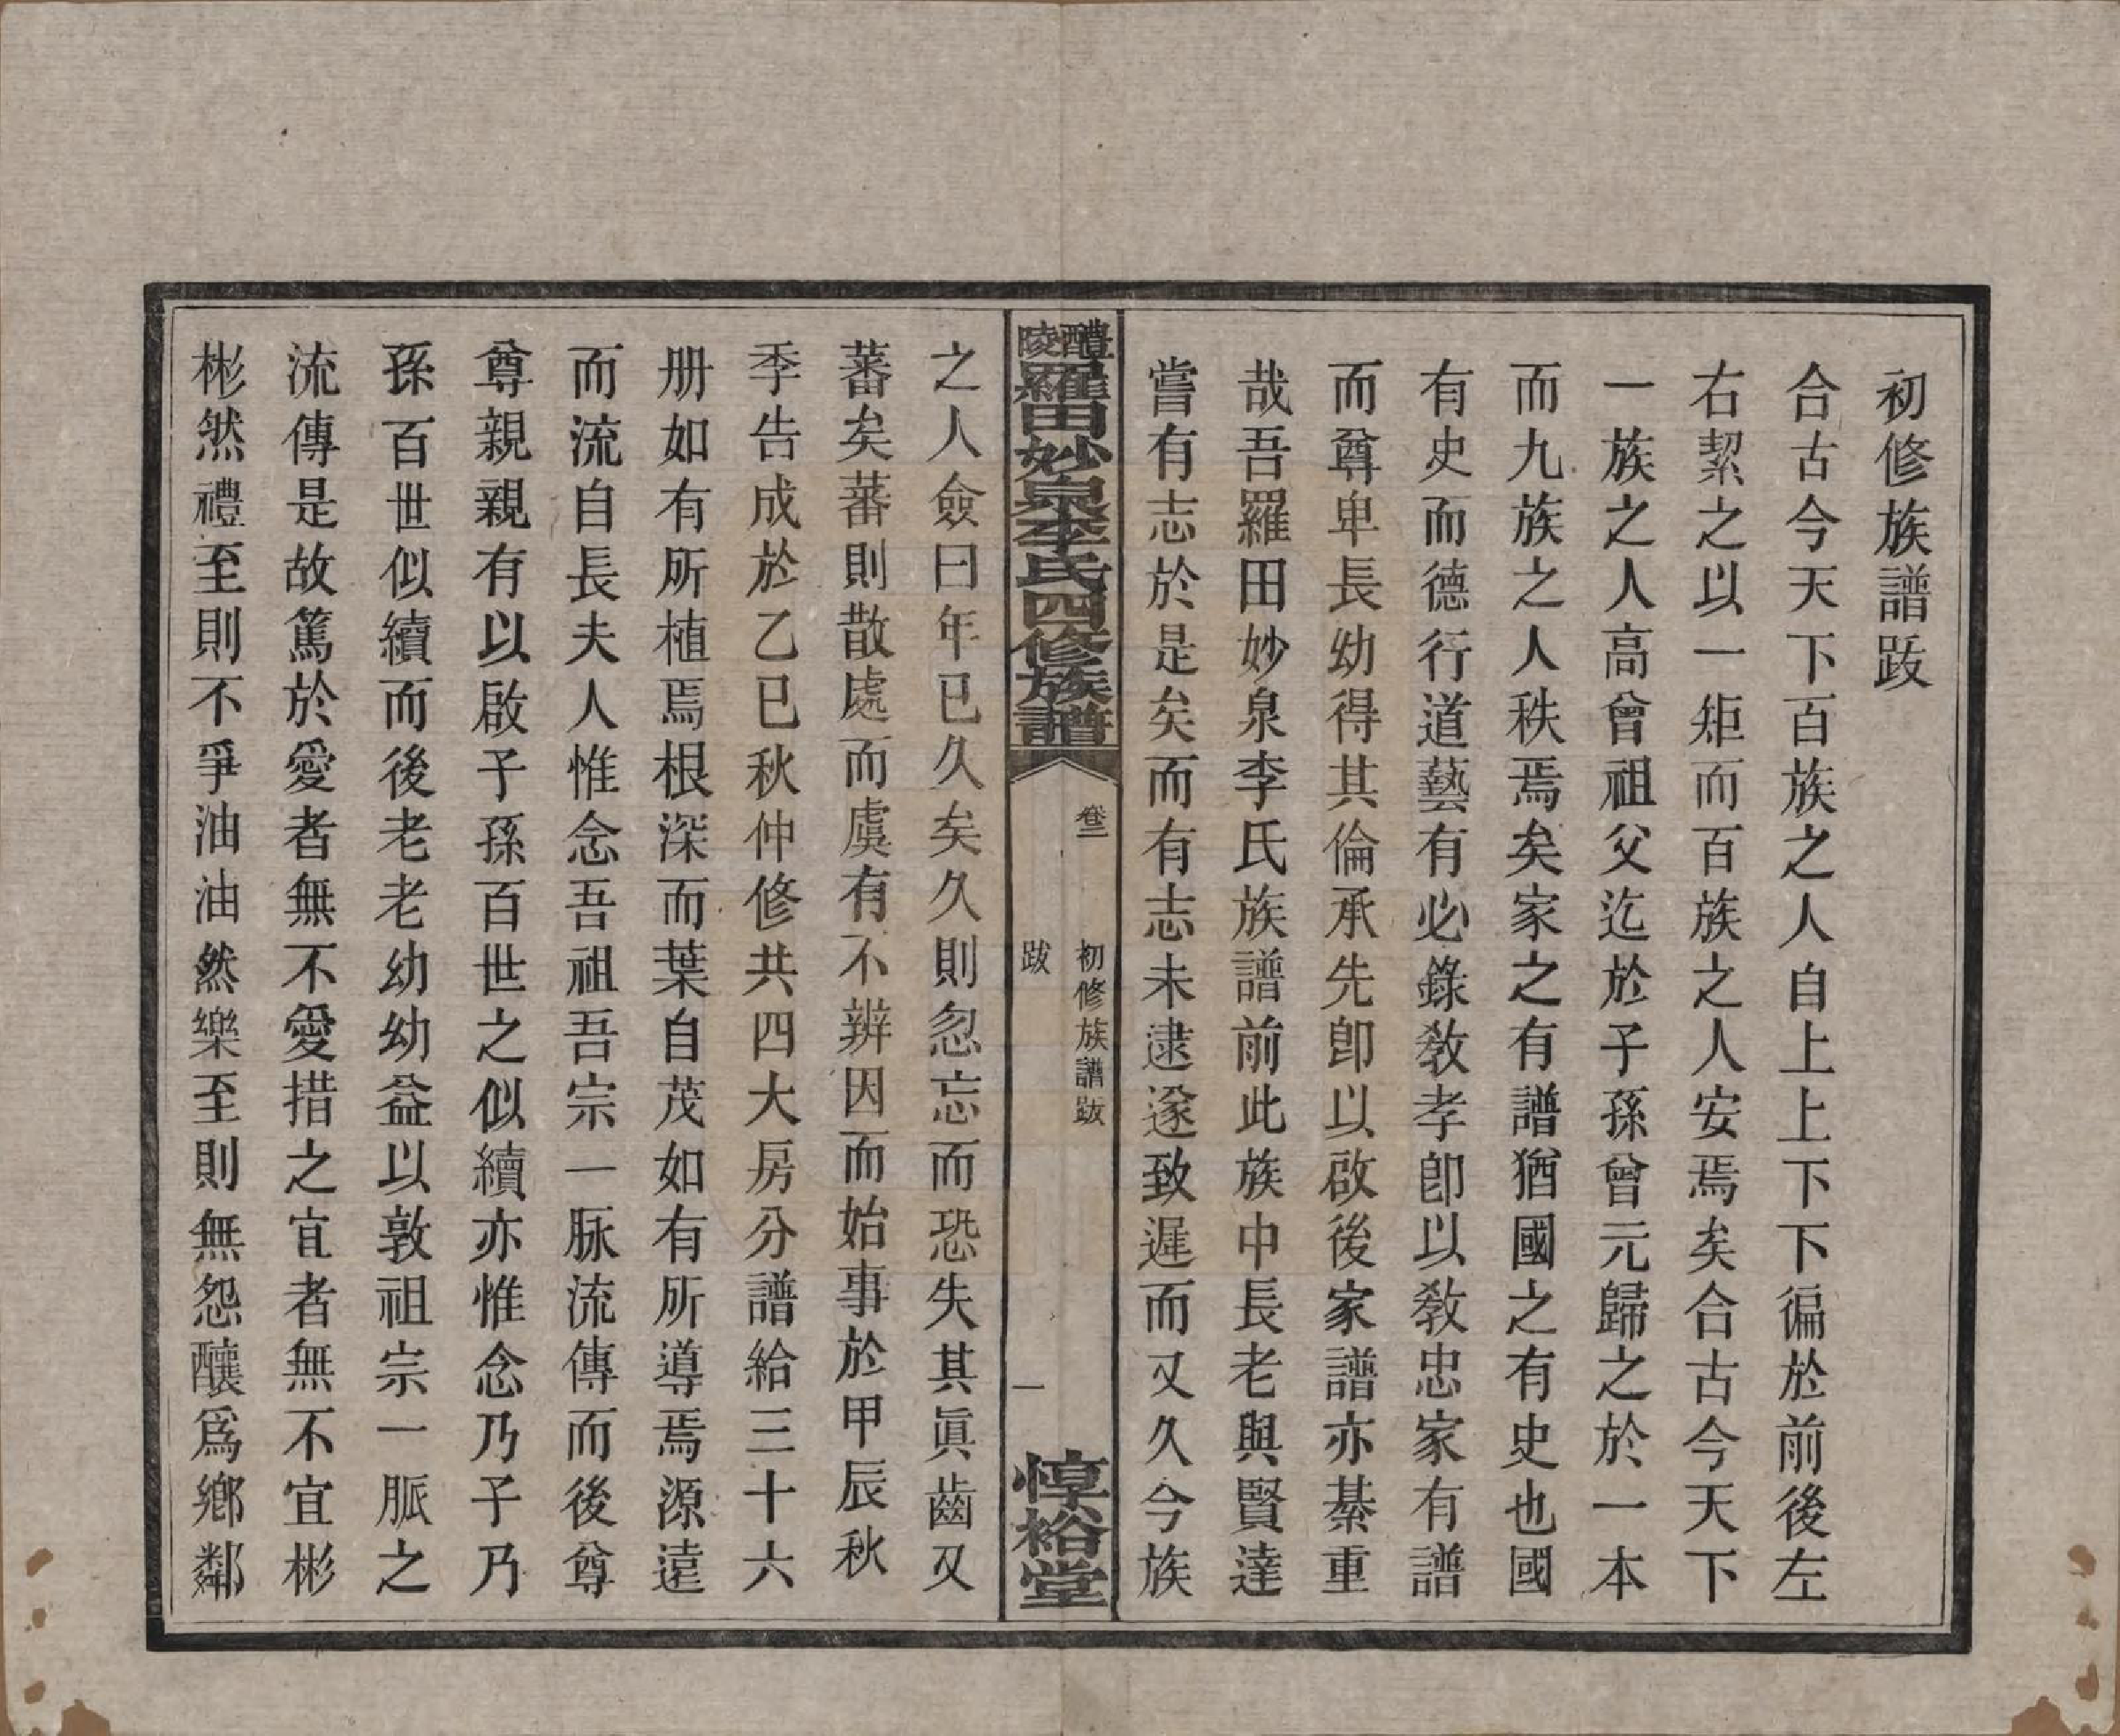 初修族譜跋
合古今天下百族之人自上上下下徧於前後左
右絜之以一矩而百族之人安焉矣合古今天下
一族之人高曾祖父迄於子孫曾元歸之於一本
而九族之人秩焉矣家之有譜猶國之有史也國
有史而德行道藝有必錄敎孝卽以敎忠家有譜
而尊卑長幼得其倫承先卽以啟後家譜亦綦重
哉吾羅田妙泉李氏族譜前此族中長老與賢達
嘗有志於是矣而有志未逮遂致遲而又久今族
醴陵羅田妙泉李氏四修族譜
卷二
初修族譜跋
跋
一
惇裕堂
之人僉曰年已久矣久則忽忘而恐失其眞齒又
蕃矣蕃則散處而虞有不辨因而始事於甲辰秋
季告成於乙巳秋仲修共四大房分譜給三十六
册如有所植焉根深而葉自茂如有所導焉源遠
而流自長夫人惟念吾祖吾宗一脉流傳而後尊
尊親親有以啟子孫百世之似續亦惟念乃子乃
孫百世似續而後老老幼幼益以敦祖宗一脈之
流傳是故篤於愛者無不愛措之宜者無不宜彬
彬然禮至則不爭油油然樂至則無怨釀爲鄕鄰